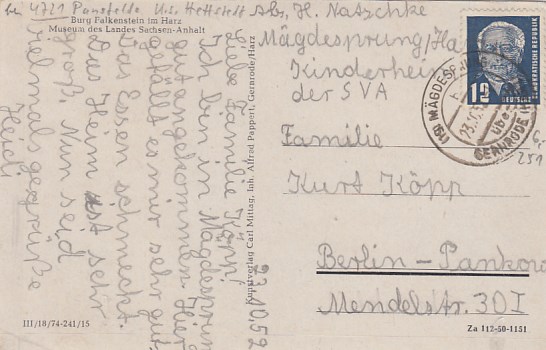 Abs. H. Natzschke
Mägdesprung/Harz
Kinderheim
der SVA
Burg Falkenstein im Harz
Museum des Landes Sachsen-Anhalt
23.10.52
Liebe Familie Köpp!
Ich bin in Mägdesprung
gut angekommen. Hier
gefällt es mir sehr gut.
Das Essen schmeckt.
Das Heim ist sehr
groß. Nun seid
vielmals gegrüßt
Kunstverlag Carl Mittag, Inh. Alfred Pappert, Gernrode/Harz
12
DEUTSCHE DEMOKRATISCHE REPUBLIK
(15b) MÄGDESPRUNG
über
GERNRODE
Familie
Kurt Köpp
Berlin-Pankow
Mendelstr. 30 I
III/18/74-241/15
Za 112-50-1151